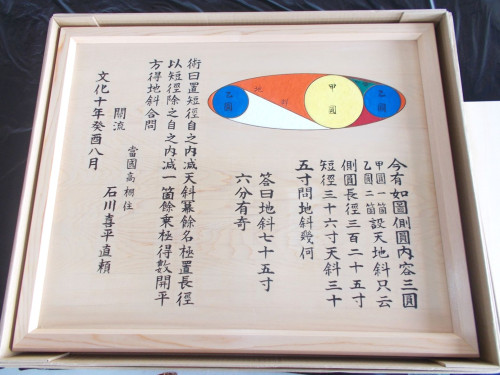 今有如圖側圓内容三圓
甲圓一箇
乙圓二箇
設天地斜只云
側圓長徑三百二十五寸
短徑三十六寸天斜三十
五寸問地斜幾何
答曰地斜七十五寸
六分有奇
術曰置短徑自之内減天斜冪餘名極置長徑
以短徑除之自之内減一箇餘乗極得數開平
方得地斜合問
關流
當國高棚住
石川喜平直頼
文化十年癸酉八月
乙圓
甲圓
地斜
乙圓